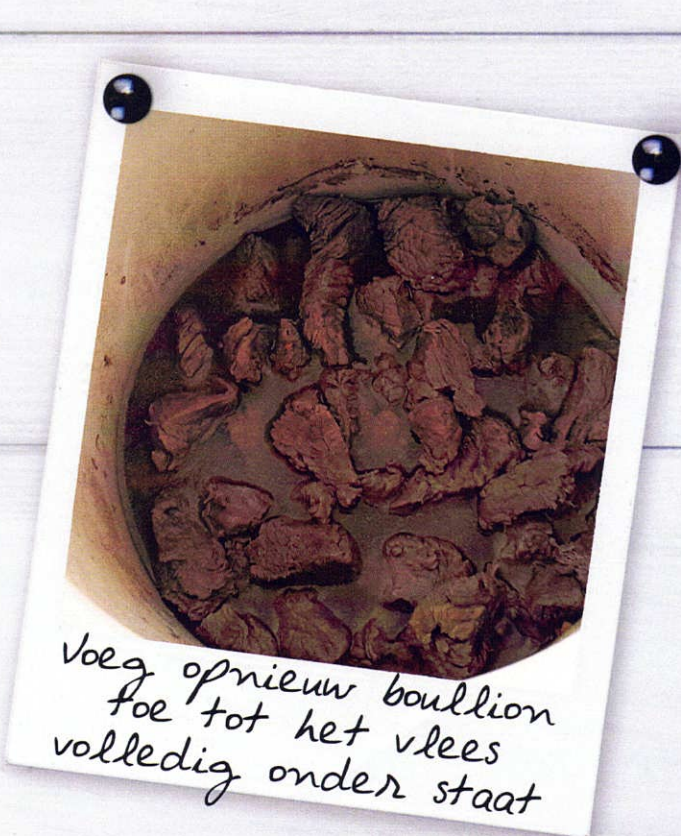 Voeg opnieuw boullion
toe tot het vlees
volledig onder staat